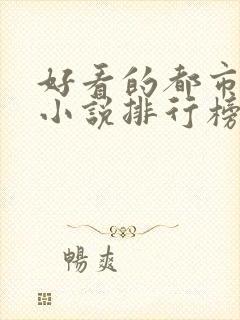 好看的都市
小说排行榜
暢爽